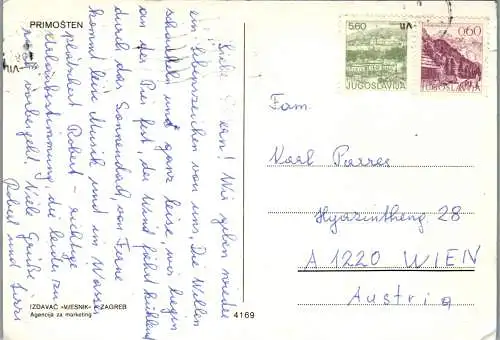 PRIMOŠTEN
Liebe Eltern! Wir geben wieder
ein Lebenszeichen von uns. Die Wellen
schaukeln uns ganz leise, wir liegen
an der Pier fest, der Wind fährt kühlend
durch das Sonnendach, von Ferne
kommt leise Musik und im Wasser
plätschert Robert - richtige
Urlaubsstimmung, die leider zu
rasch vorbeigeht. Viele Grüße
Robert und
IZDAVAČ »VJESNIK« ZAGREB
Agencija za marketing
4169
5.60
JUGOSLAVIJA
0.60
JUGOSLAVIJA
Fam.
Karl
Hyazintheng 28
A 1220 WIEN
Austria